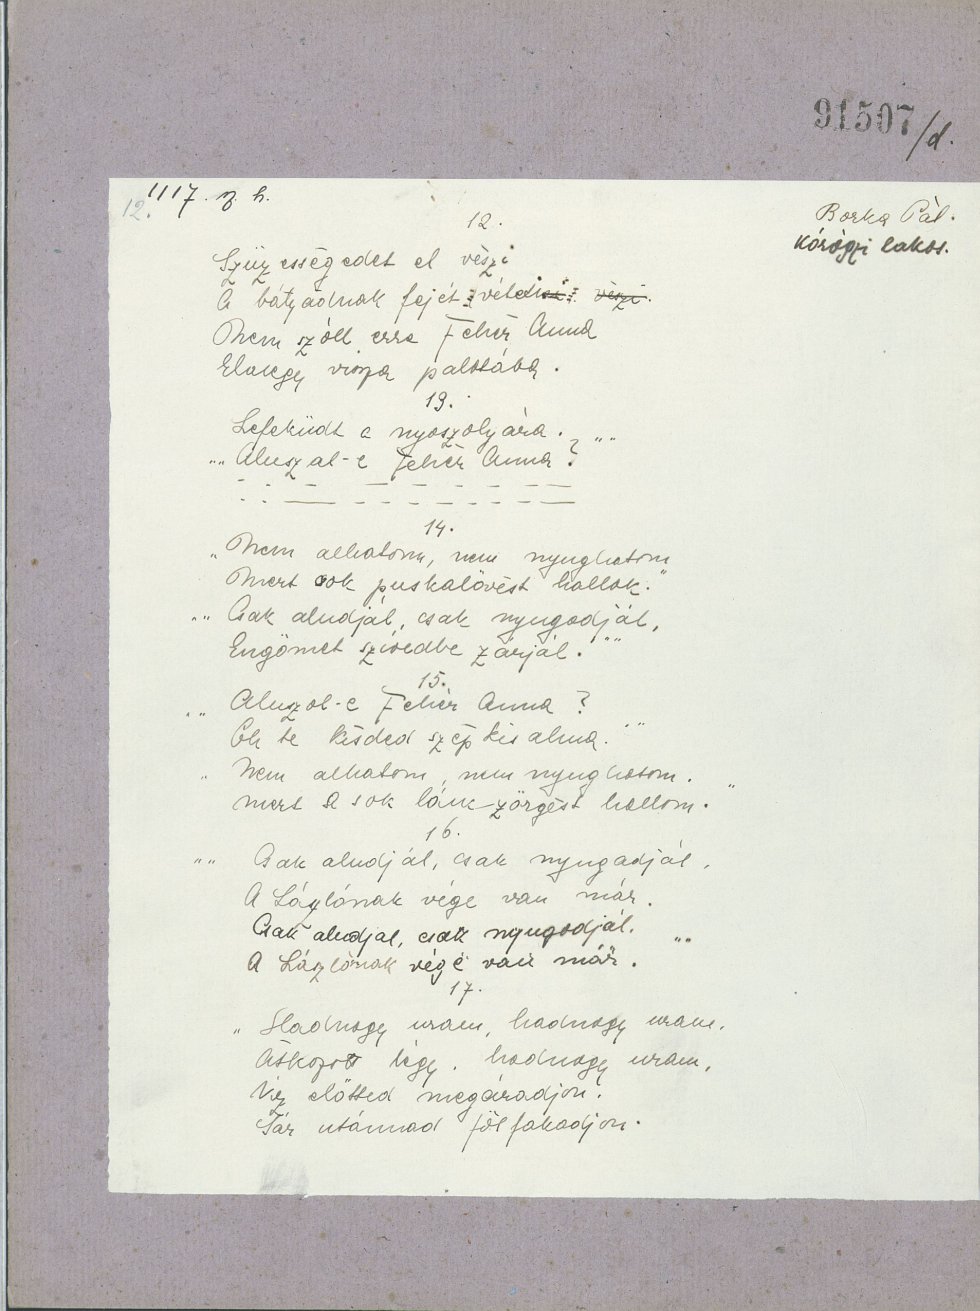 91507/d.
12.
1117. z. h.
12.
Borka Pál.
Kórógyi lakos.
Szüzességedet el vészi
A bátyádnak fejét véteti vészi.
Nem szóll erre Fehér Anna
Elmegy vissza palotába.
13.
Lefeküdt a nyoszolyára.
„„Aluszal-e Fehér Anna?""
14.
„Nem alhatom, nem nyughatom
Mert sok puskalövést hallok."
„„Csak aludjál, csak nyugodjál,
Engömet szivedbe zárjál.""
15.
„„Aluszol-e Fehér Anna?
Oh te kisded szép kis alma.""
„Nem alhatom, nem nyughatom.
mert a sok lánc zörgést hallom."
16.
„„Csak aludjál, csak nyugadjál,
A Lázlónak vége van már.
Csak aludjal, csak nyugodjál.
A Lázlónak vége van már.""
17.
„Hadnagy uram, hadnagy uram,
Átkozott légy, hadnagy uram,
Viz előtted megáradjon.
Sár utánnad fölfakadjon.